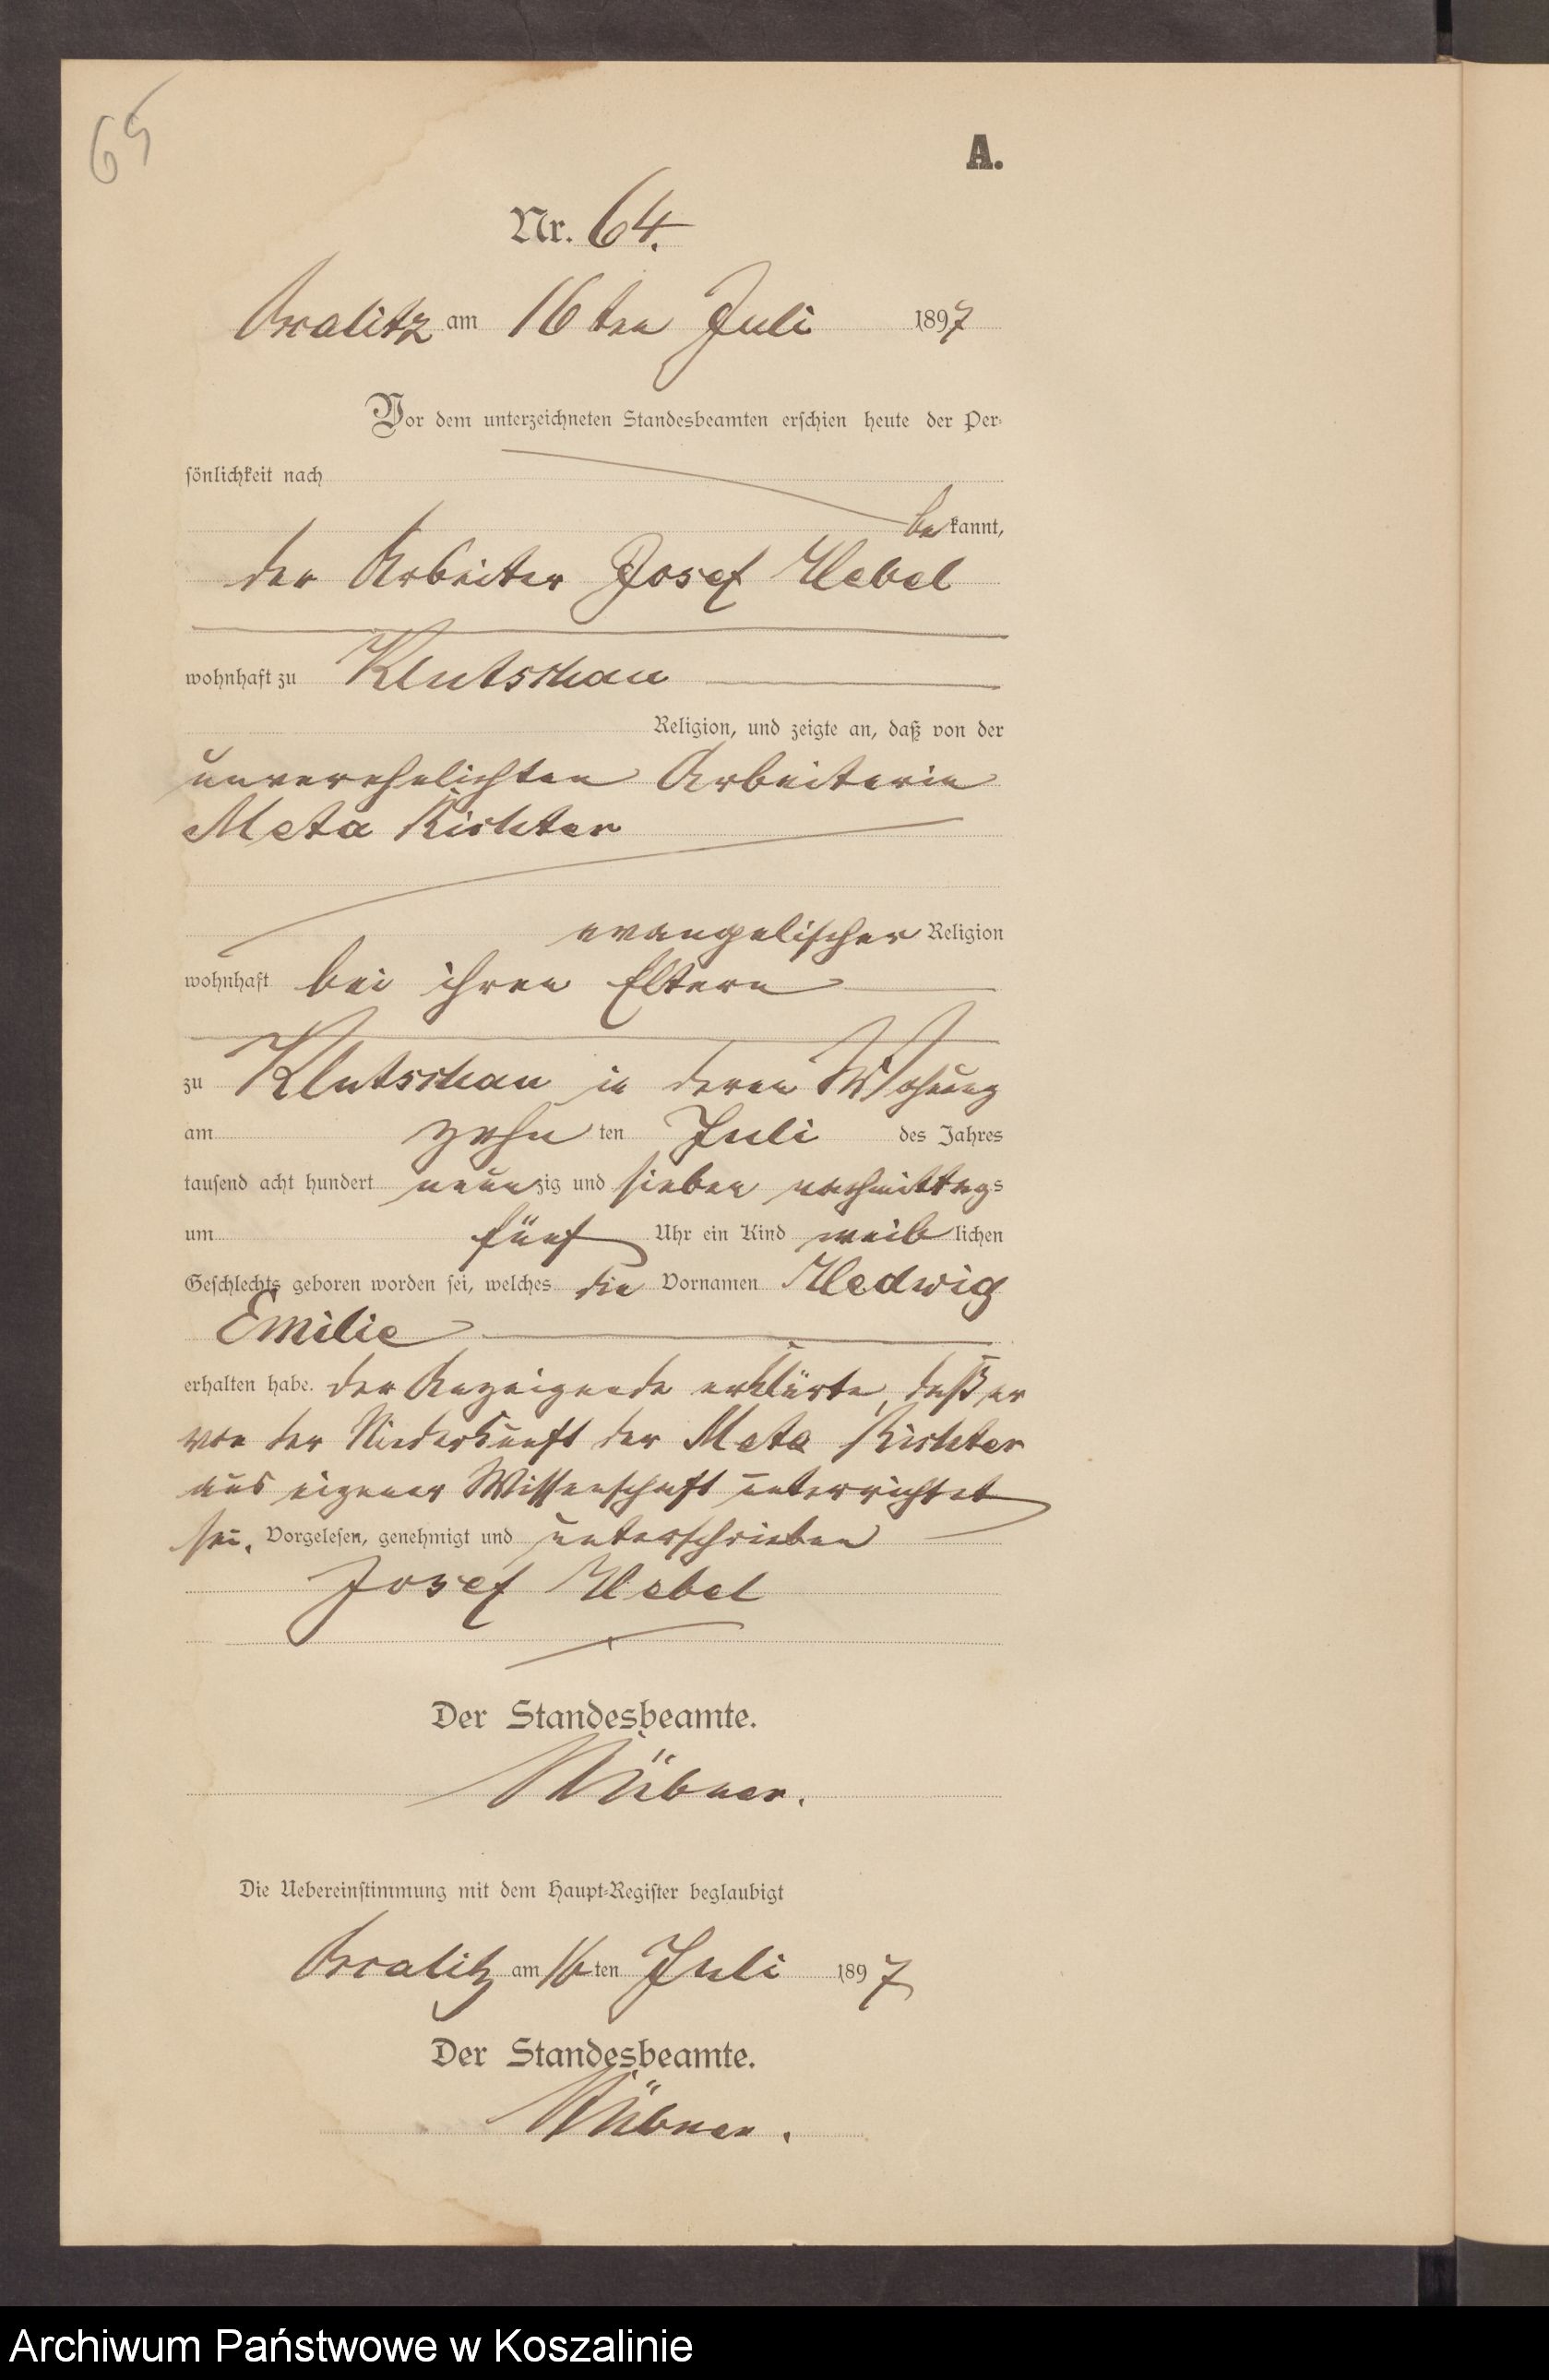 65
A.
Nr. 64.
am 16ten Juli 1897
Vor dem unterzeichneten Standesbeamten erschien heute der Per-
sönlichkeit nach
bekannt,
der Arbeiter Josef Hebel
wohnhaft zu Klutschau
Religion, und zeigte an, daß von der
unverehelichten Arbeiterin
Meta Richter
evangelischer Religion
wohnhaft bei ihren Eltern
zu Klutschau in deren Wohnung
am zehn ten Juli des Jahres
tausend acht hundert neunzig und sieben nachmittags
um fünf Uhr ein Kind weiblichen
Geschlechts geboren worden sei, welches die Vornamen Hedwig
Emilie
erhalten habe. Der Anzeigende erklärte, daß er
von der Niederkunft der Meta Richter
aus eigener Wissenschaft unterrichtet
sei. Vorgelesen, genehmigt und unterschrieben
Josef Hebel
Der Standesbeamte.
Die Uebereinstimmung mit dem Haupt-Register beglaubigt
am 16ten Juli 1897
Der Standesbeamte.
Archiwum Państwowe w Koszalinie